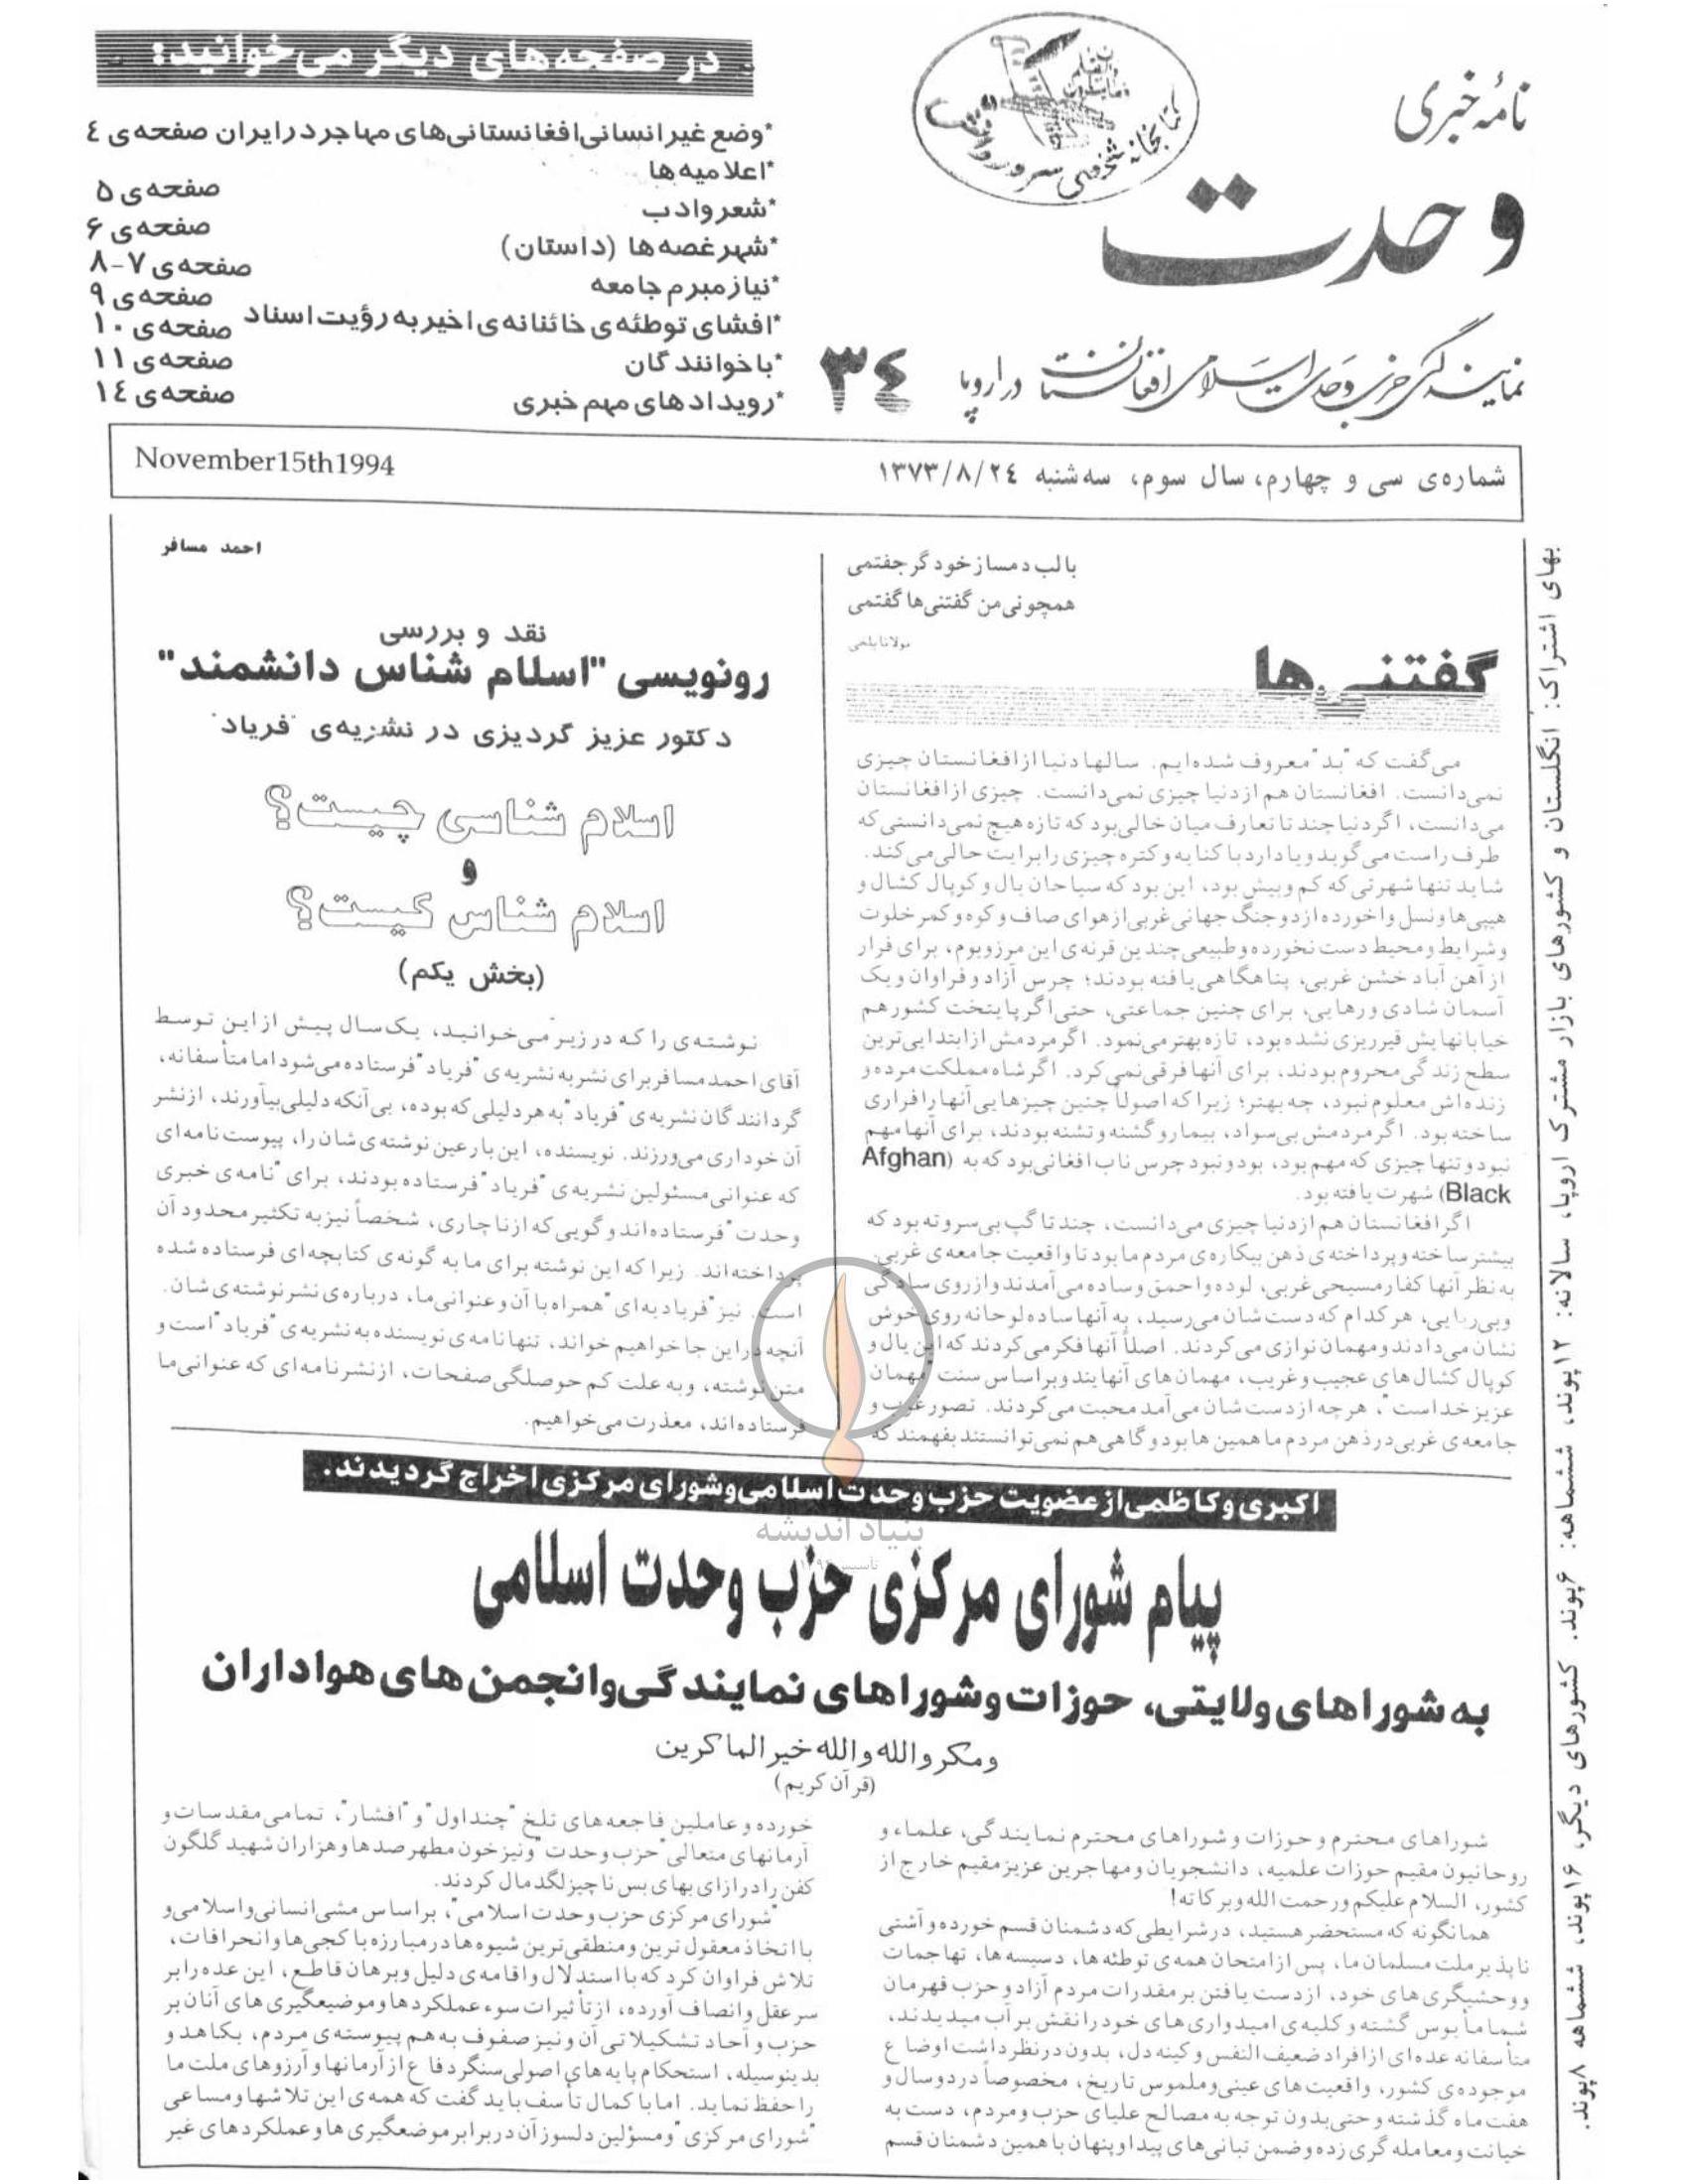 نامهٔ خبری
وحدت
نمایندگی حزب وحدت اسلامی افغانستان در اروپا
۳٤
کتابخانه شخصی سرور دانش
در صفحه‌های دیگر می‌خوانید:
*وضع غیرانسانی افغانستانی‌های مهاجر در ایران صفحه‌ی ٤
*اعلامیه‌ها صفحه‌ی ۵
*شعر و ادب صفحه‌ی ۶
*شهر غصه‌ها (داستان) صفحه‌ی ۷-۸
*نیاز مبرم جامعه صفحه‌ی ۹
*افشای توطئه‌ی خائنانه‌ی اخیر به رؤیت اسناد صفحه‌ی ۱۰
*با خوانندگان صفحه‌ی ۱۱
*رویدادهای مهم خبری صفحه‌ی ۱٤
شماره‌ی سی و چهارم، سال سوم، سه‌شنبه ۱۳۷۳/۸/۲٤
November15th1994
بهای اشتراک: انگلستان و کشورهای بازار مشترک اروپا، سالانه: ۱۲پوند، ششماهه: ۶پوند. کشورهای دیگر، ۱۶پوند، ششماهه ۸پوند.
با لب دمساز خود گر جفتمی
همچو نی من گفتنی‌ها گفتمی
مولانا بلخی
گفتنی‌ها
می‌گفت که "بد" معروف شده‌ایم. سالها دنیا از افغانستان چیزی
نمی‌دانست. افغانستان هم از دنیا چیزی نمی‌دانست. چیزی از افغانستان
می‌دانست، اگر دنیا چند تا تعارف میان خالی بود که تازه هیچ نمی‌دانستی که
طرف راست می‌گوید و یا دارد با کنایه و کتره چیزی را برایت حالی می‌کند.
شاید تنها شهرتی که کم و بیش بود، این بود که سیاحان یال و کوپال کشال و
هیپی‌ها و نسل واخورده از دو جنگ جهانی غربی از هوای صاف و کوه و کمر خلوت
و شرایط و محیط دست نخورده و طبیعی چندین قرنه‌ی این مرز و بوم، برای فرار
از آهن آباد خشن غربی، پناهگاهی یافته بودند؛ چرس آزاد و فراوان و یک
آسمان شادی و رهایی، برای چنین جماعتی، حتی اگر پایتخت کشور هم
خیابانهایش قیرریزی نشده بود، تازه بهتر می‌نمود. اگر مردمش از ابتدایی‌ترین
سطح زندگی محروم بودند، برای آنها فرقی نمی‌کرد. اگر شاه مملکت مرده و
زنده‌اش معلوم نبود، چه بهتر؛ زیرا که اصولاً چنین چیزهایی آنها را فراری
ساخته بود. اگر مردمش بی‌سواد، بیمار و گشنه و تشنه بودند، برای آنها مهم
نبود و تنها چیزی که مهم بود، بود و نبود چرس ناب افغانی بود که به (Afghan
Black) شهرت یافته بود.
اگر افغانستان هم از دنیا چیزی می‌دانست، چند تا گپ بی‌سر و ته بود که
بیشتر ساخته و پرداخته‌ی ذهن بیکاره‌ی مردم ما بود تا واقعیت جامعه‌ی غربی.
به نظر آنها کفار مسیحی غربی، لوده و احمق و ساده می‌آمدند و از روی سادگی
و بی‌ریایی، هر کدام که دست شان می‌رسید، به آنها ساده لوحانه روی خوش
نشان می‌دادند و مهمان نوازی می‌کردند. اصلاً آنها فکر می‌کردند که این یال و
کوپال کشال‌های عجیب و غریب، مهمان‌های آنهایند و براساس سنت "مهمان
عزیز خداست"، هر چه از دست شان می‌آمد محبت می‌کردند. تصور غرب و
جامعه‌ی غربی در ذهن مردم ما همین‌ها بود و گاهی هم نمی‌توانستند بفهمند که
احمد مسافر
نقد و بررسی
رونویسی "اسلام شناس دانشمند"
دکتور عزیز گردیزی در نشریه‌ی "فریاد"
اسلام شناسی چیست؟
و
اسلام شناس کیست؟
(بخش یکم)
نوشته‌ی را که در زیر می‌خوانید، یک سال پیش از این توسط
آقای احمد مسافر برای نشر به نشریه‌ی "فریاد" فرستاده می‌شود اما متأسفانه،
گردانندگان نشریه‌ی "فریاد" به هر دلیلی که بوده، بی‌آنکه دلیلی بیاورند، از نشر
آن خودداری می‌ورزند. نویسنده، این بار عین نوشته‌ی شان را، پیوست نامه‌ای
که عنوانی مسئولین نشریه‌ی "فریاد" فرستاده بودند، برای "نامه‌ی خبری
وحدت" فرستاده‌اند و گویی که از ناچاری، شخصاً نیز به تکثیر محدود آن
پرداخته‌اند. زیرا که این نوشته برای ما به گونه‌ی کتابچه‌ای فرستاده شده
است. نیز "فریادیه‌ای" همراه با آن و عنوانی ما، درباره‌ی نشر نوشته‌ی شان.
آنچه در این جا خواهیم خواند، تنها نامه‌ی نویسنده به نشریه‌ی "فریاد" است و
متن نوشته، و به علت کم حوصلگی صفحات، از نشر نامه‌ای که عنوانی ما
فرستاده‌اند، معذرت می‌خواهیم.
اکبری و کاظمی از عضویت حزب وحدت اسلامی و شورای مرکزی اخراج گردیدند.
بنیاد اندیشه
پیام شورای مرکزی حزب وحدت اسلامی
به شوراهای ولایتی، حوزات و شوراهای نمایندگی و انجمن‌های هواداران
ومکر و الله والله خیر الماکرین
(قرآن کریم)
شوراهای محترم و حوزات و شوراهای محترم نمایندگی، علماء و
روحانیون مقیم حوزات علمیه، دانشجویان و مهاجرین عزیز مقیم خارج از
کشور، السلام علیکم و رحمت الله و برکاته!
همانگونه که مستحضر هستید، در شرایطی که دشمنان قسم خورده و آشتی
ناپذیر ملت مسلمان ما، پس از امتحان همه‌ی توطئه‌ها، دسیسه‌ها، تهاجمات
و وحشیگری‌های خود، از دست یافتن بر مقدرات مردم آزاد و حزب قهرمان
شما مأیوس گشته و کلیه‌ی امیدواری‌های خود را نقش بر آب میدیدند،
متأسفانه عده‌ای از افراد ضعیف النفس و کینه دل، بدون در نظرداشت اوضاع
موجوده‌ی کشور، واقعیت‌های عینی و ملموس تاریخ، مخصوصاً در دو سال و
هفت ماه گذشته و حتی بدون توجه به مصالح علیای حزب و مردم، دست به
خیانت و معامله گری زده و ضمن تبانی‌های پیدا و پنهان با همین دشمنان قسم
خورده و عاملین فاجعه‌های تلخ "چنداول" و "افشار"، تمامی مقدسات و
آرمانهای متعالی "حزب وحدت" و نیز خون مطهر صدها و هزاران شهید گلگون
کفن را در ازای بهای بس ناچیز لگدمال کردند.
"شورای مرکزی حزب وحدت اسلامی"، براساس مشی انسانی و اسلامی و
با اتخاذ معقول ترین و منطقی‌ترین شیوه‌ها در مبارزه با کجی‌ها و انحرافات،
تلاش فراوان کرد که با استدلال و اقامه‌ی دلیل و برهان قاطع، این عده را بر
سر عقل و انصاف آورده، از تأثیرات سوء عملکردها و موضیعگیری‌های آنان بر
حزب و آحاد تشکیلاتی آن و نیز صفوف به هم پیوسته‌ی مردم، بکاهد و
بدینوسیله، استحکام پایه‌های اصولی سنگر دفاع از آرمانها و آرزوهای ملت ما
را حفظ نماید. اما با کمال تأسف باید گفت که همه‌ی این تلاشها و مساعی
"شورای مرکزی" و مسؤلین دلسوز آن در برابر موضعگیری‌ها و عملکردهای غیر